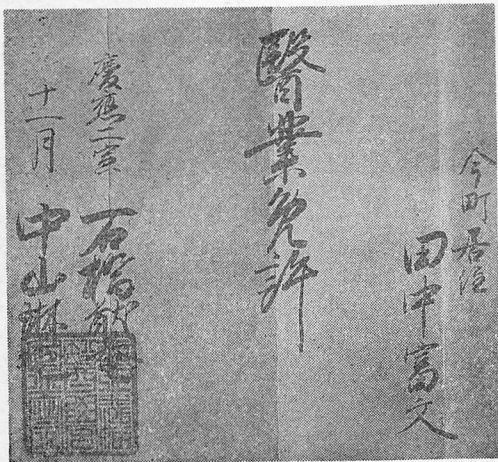 今町居住
田中富文
醫業免許
慶應二寅
十一月
石橋
中山